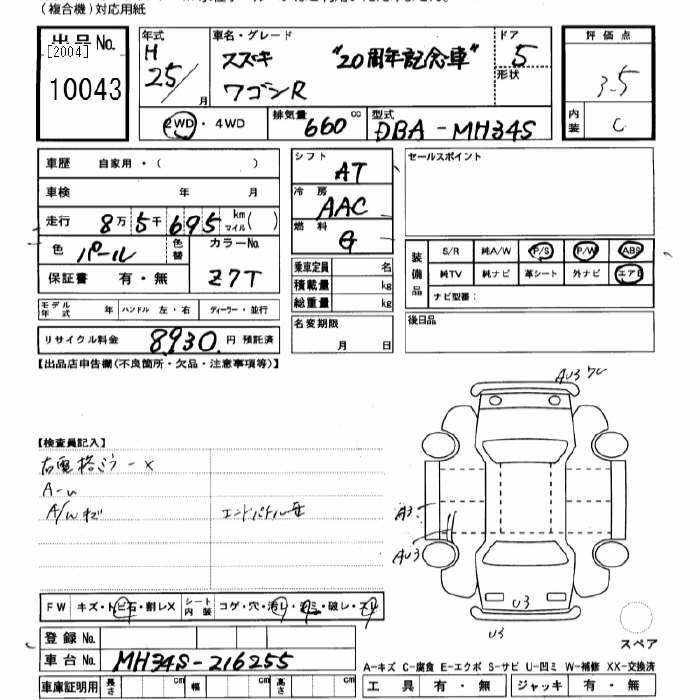 (複合機)対応用紙
出品No.
[2004]
10043
年式
H 25/ 月
車名・グレード
スズキ "20周年記念車"
ワゴンR
ドア
5
形状
評価点
3.5
内装
C
2WD・4WD
排気量
660 cc
型式
DBA-MH34S
車歴 自家用・( )
車検 年 月
走行 8万5千695 km マイル( )
色 パール
色替
カラーNo.
Z7T
保証書 有・無
モデル年式 年 ハンドル 左・右 ディーラー・並行
リサイクル料金 8930 円 預託済
シフト
AT
冷房
AAC
燃料
G
乗車定員 名
積載量 kg
総重量 kg
名変期限
月 日
セールスポイント
装備品
S/R 純A/W P/S P/W ABS
純TV 純ナビ 革シート 外ナビ エアB
ナビ型番:
後日品
【出品店申告欄(不良箇所・欠品・注意事項等)】
【検査員記入】
右電格ミラーX
A-u
A/wキズ
FW キズ・トビ石・割レX
シート内装 コゲ・穴・汚レ・シミ・破レ・スレ
登録No.
車台No. MH34S-216255
車庫証明用 長さ cm 幅 cm 高さ cm
AU3
A3
AU3
U3
U3
スペア
A-キズ C-腐食 E-エクボ S-サビ U-凹ミ W-補修 XX-交換済
工具 有・無 ジャッキ 有・無